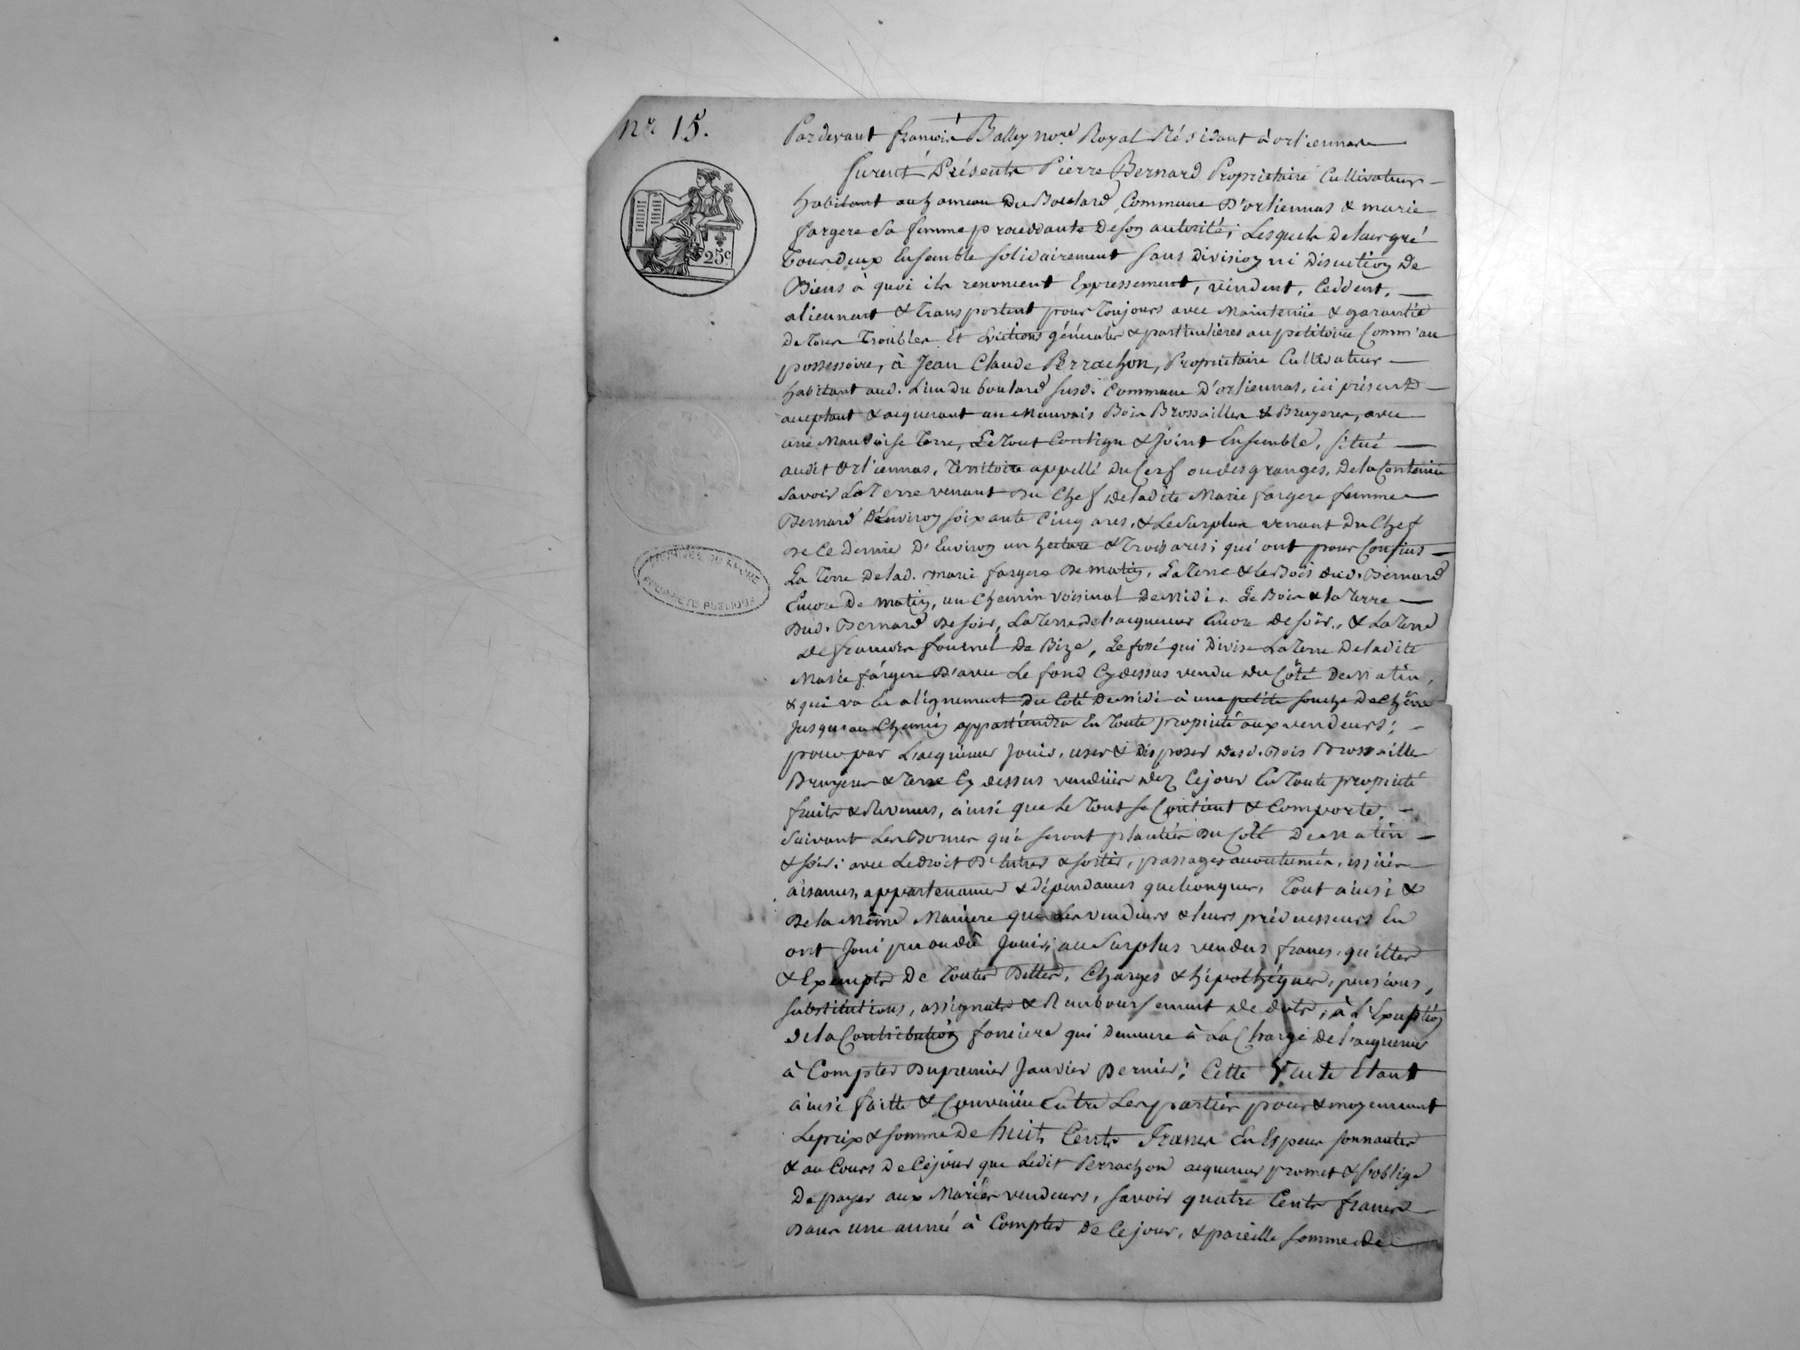 nr 15.
25c.
ARCHIVES DU RHÔNE
PROPRIÉTÉ PUBLIQUE
Pardevant françois Balley nore. Royal Résidant à orliennas
furent Présents Pierre Bernard Propriétaire Cultivateur
habitant au hameau Du Boulard, Commune D'orliennas & marie
fargere Sa femme procédante De son autorité; Lesquels de leur gré
tous deux Ensemble solidairement sans division ni Discution De
Biens à quoi ils renoncent Expressement, vendent, Cèddent,
alienent & transportent pour toujours avec Maintenüe & garantie
De tous troubles Et Evictions générales & particulières au petitoire Comm'au
possessoire, à Jean Claude Perrachon, Propriétaire Cultivateur
habitant aud. Lieu du boulard susd. Commune D'orliennas, ici présent
acceptant & acquerant un Mauvais Bois Brossailles & Bruyeres, avec
une Mauvaise terre, Le tout Contigu & Joint Ensemble, situé
audit orliennas, territoire appellé Du Cerf ou des granges, De la Contenüe
savoir La terre venant Du Chef de ladite Marie fargere femme
Bernard D'Environ soixante Cinq ares, & Le surplus venant Du Chef
De Ce Dernier D'Environ un hectare & trois ares; qui ont pour Confins
La terre De lad. Marie fargere De matin, La terre & le Bois dud. Bernard
Encore De matin, un Chemin voisinal De Midi, Le Bois & la terre
Dud. Bernard De soir, La terre de l'acquereur Encore De soir, & La terre
de françois fournel De Bize, Le fossé qui Divise La terre De ladite
Marie fargere D'avec Le fond Cy dessus vendu du Côté De Matin,
& qui va En alignement du Côté De Midi à une petite souche De Chêne
Jusqu'au Chemin appartiendra En toute propriété aux vendeurs;
pour par L'acquereur Jouir, user & Disposer desd. Bois Brossailles
Bruyeres & terre Cy dessus vendües dez Cejour En toute propriété
fruits & Revenus, ainsi que Le tout se Contient & Comporte,
suivant Les Bornes qui seront plantées Du Côté De Matin
& soir: avec Le droit D'Entrées & sorties, passages accoutumés, issües
aisances, appartenances & dépendances quelconques, tout ainsi &
De la Même Maniere que Les vendeurs & leurs prédecesseurs En
ont Joui pu ou dû Jouir; au surplus vendus francs, quittes
& Exempts De toutes Dettes, Charges & hipothéques, pensions,
substitutions, assignats & Remboursement de dots, à L'Exception
de la Contribution fonciere qui Demeure à La Charge De l'acquereur
à Compter Du premier Janvier Dernier; Cette Vente Etant
ainsi faitte & Convenüe Entre Les parties pour & moyennant
Le prix & somme De huit Cents francs En Especes sonnantes
& au Cours De Cejour que Ledit Perrachon acquereur promet & s'oblige
De payer aux Mariés vendeurs, savoir quatre Cents francs
Dans une année à Compter De Cejour, & pareille somme de